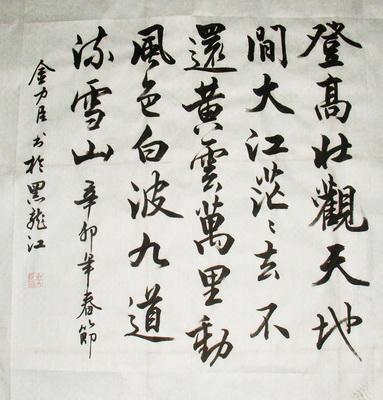 登高壮觀天地
間大江茫〻去不
還黄雲萬里動
風色白波九道
流雪山 辛卯年春節
金力臣书於黑龍江